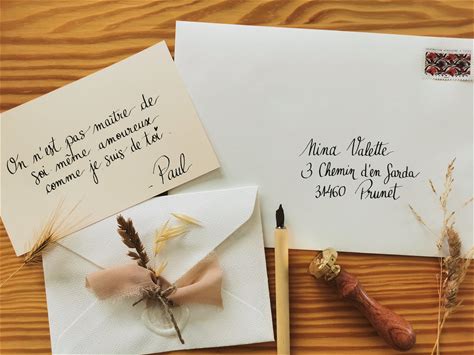 On n'est pas maître de
soi même amoureux
comme je suis de toi.
- Paul
Nina Valette
3 Chemin d'en Sarda
31460 Prunet